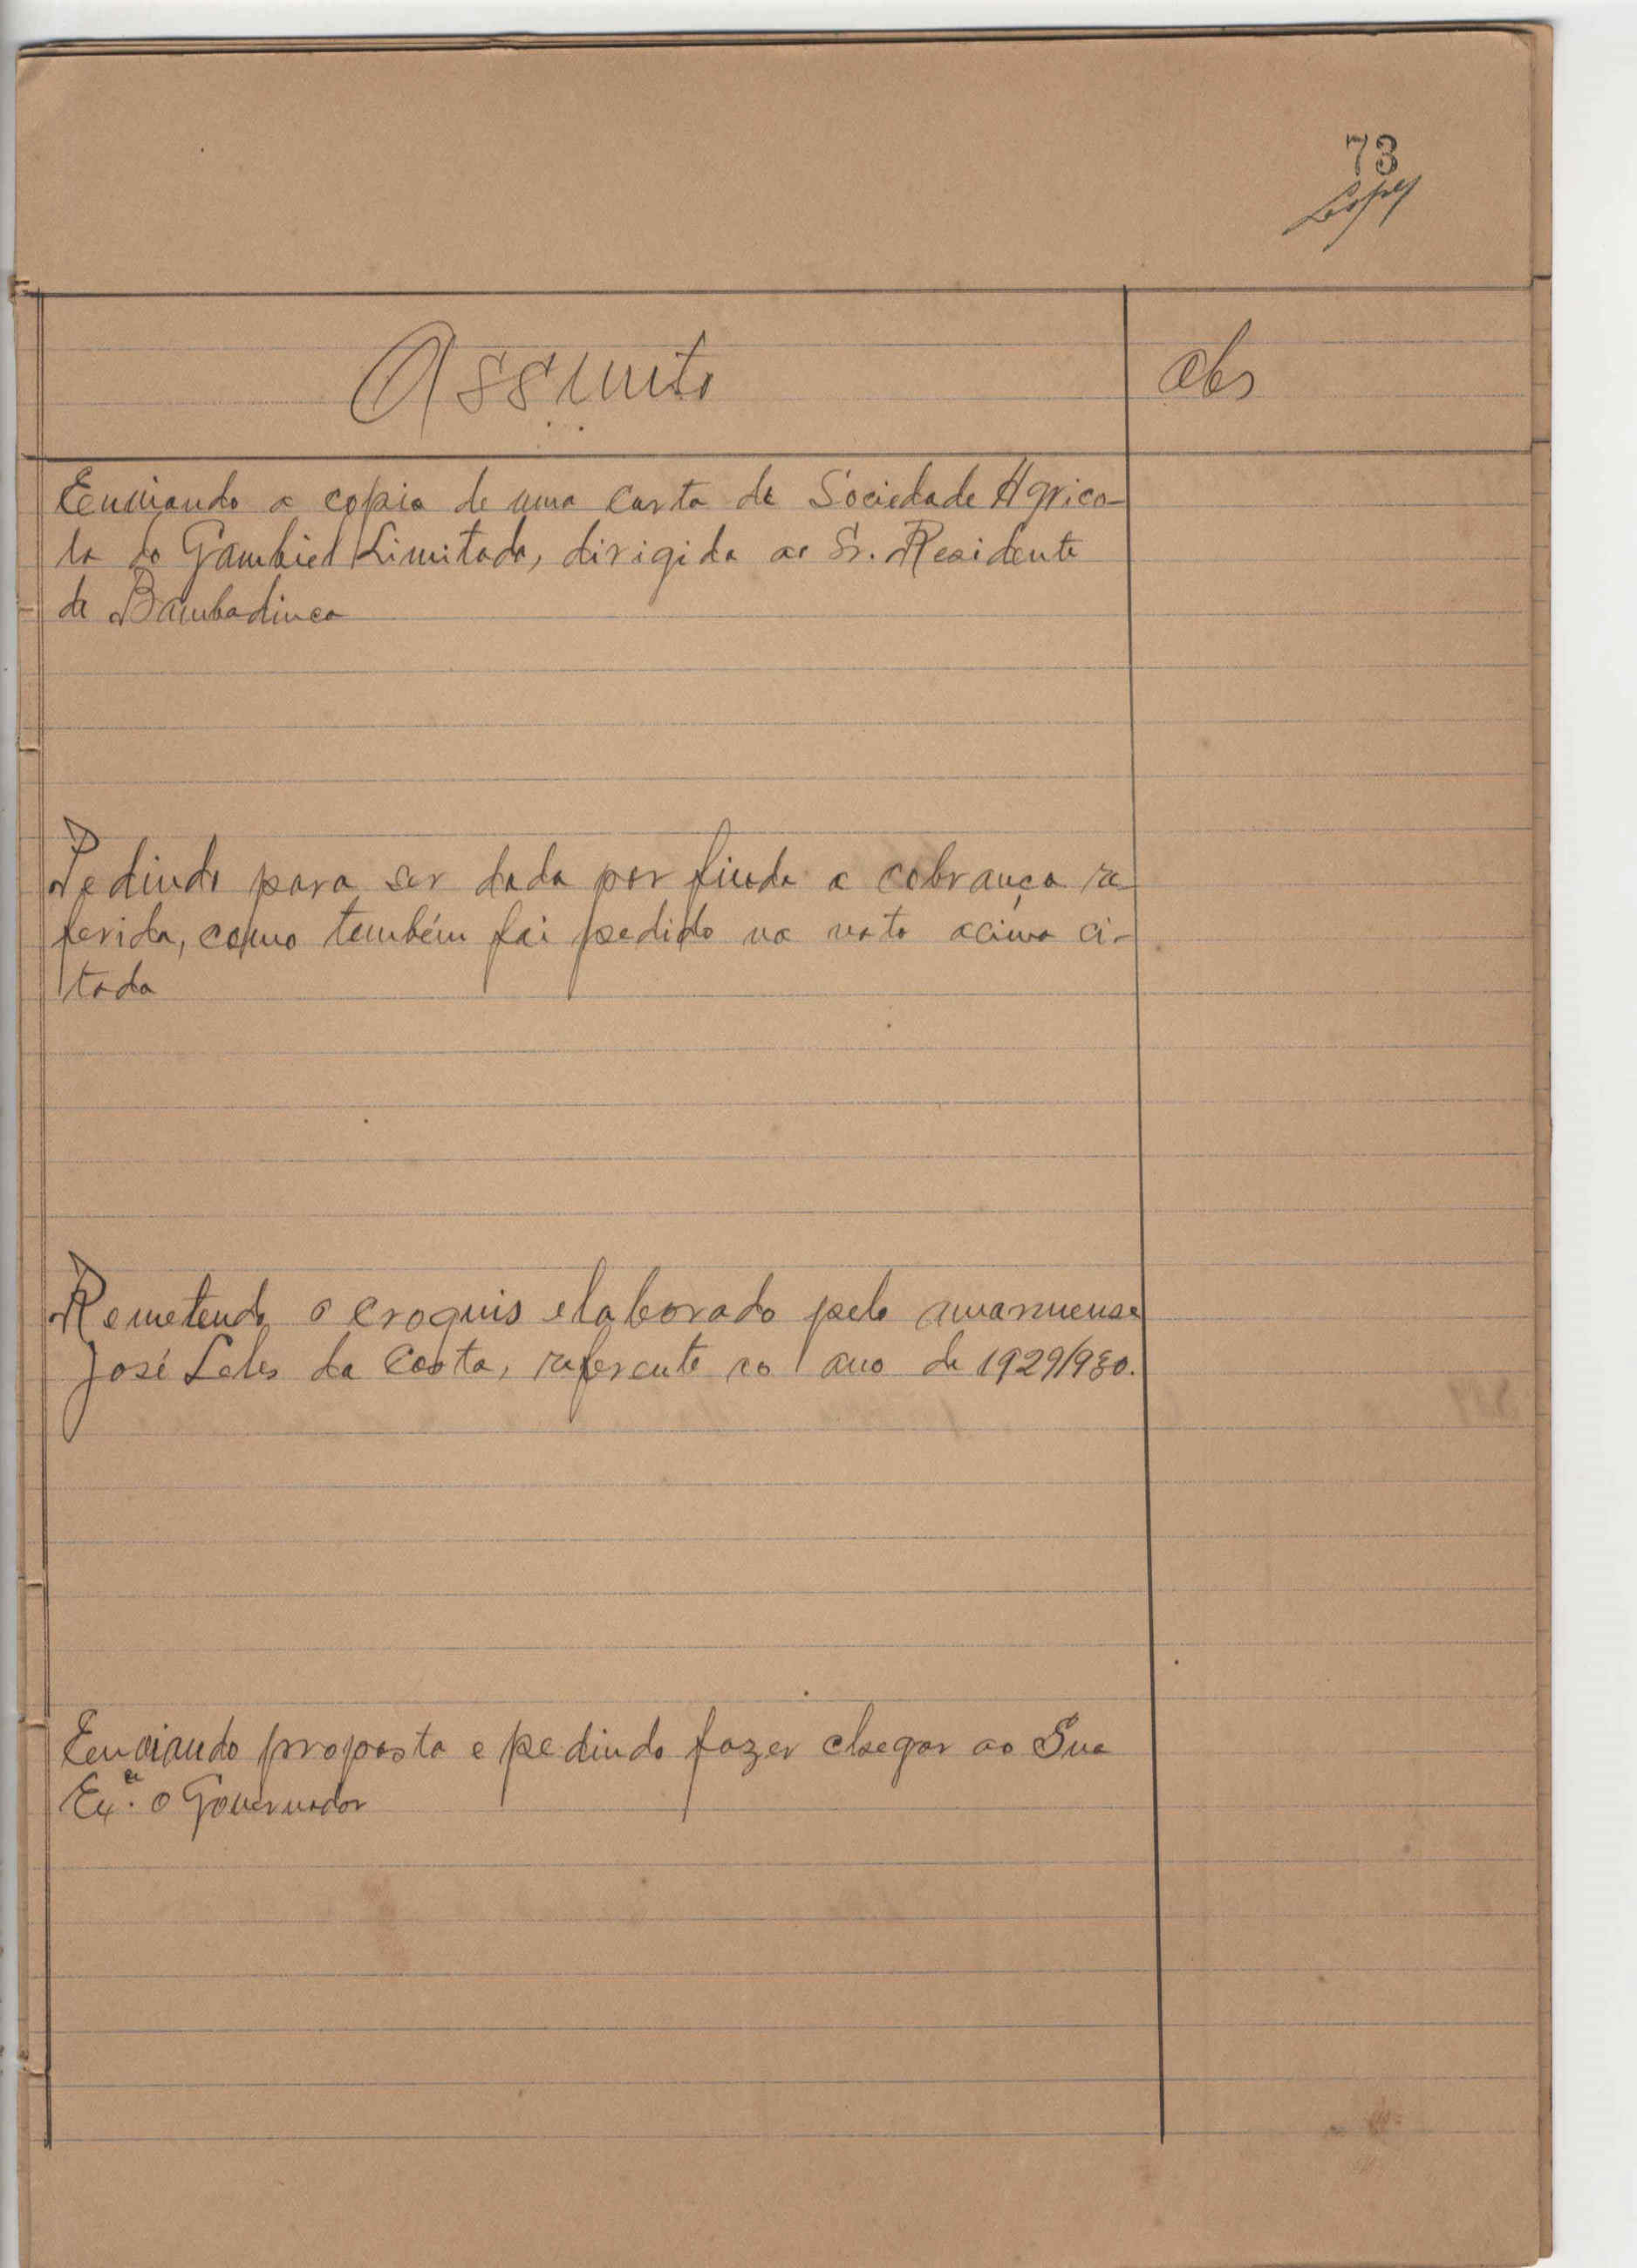 73
Assunto
Obs
Enviando a copia de uma carta da Sociedade Agrico-
la do Gambiel Limitada, dirigida ao Sr. Residente
de Bambadinca
Pedindo para ser dada por finda a cobrança re-
ferida, como também foi pedido na nota acima ci-
tada
Remetendo o croquis elaborado pelo amanuense
José Leles da Costa, referente ao ano de 1929/930.
Enviando proposta e pedindo fazer chegar ao Sua
Exª. o Governador